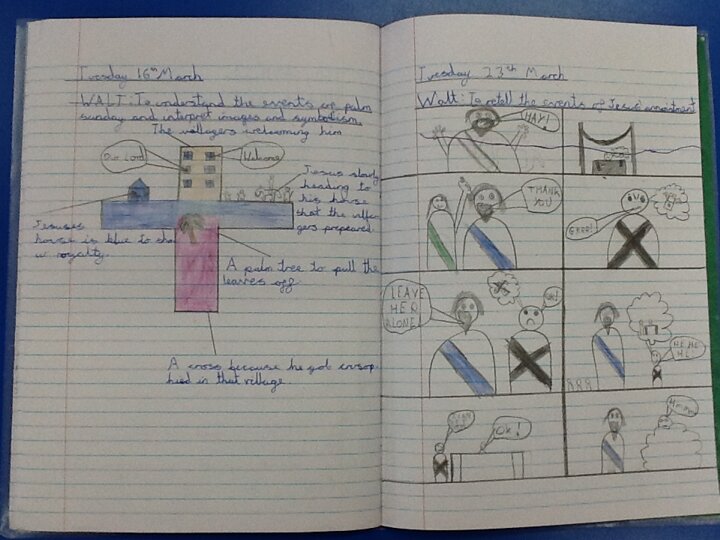 Tuesday 16th March
WALT: To understand the events on palm
sunday and interpret images and symbolism.
The vallagers welcoming him
Our Lord
Welcome
Jesus slowly
heading to
his house
that the
gers prepeared
Jesuses
house is blue to sho
w royalty.
A palm tree to pull the
leaves off
A cross because he got
hied in that village
Tuesday 23rd March
Walt: To retell the events of Jesus'
HAY!
THANK
YOU
GRRR!
LEAVE
HER
ALONE!
HE HE
HE
OK!
Hmmm